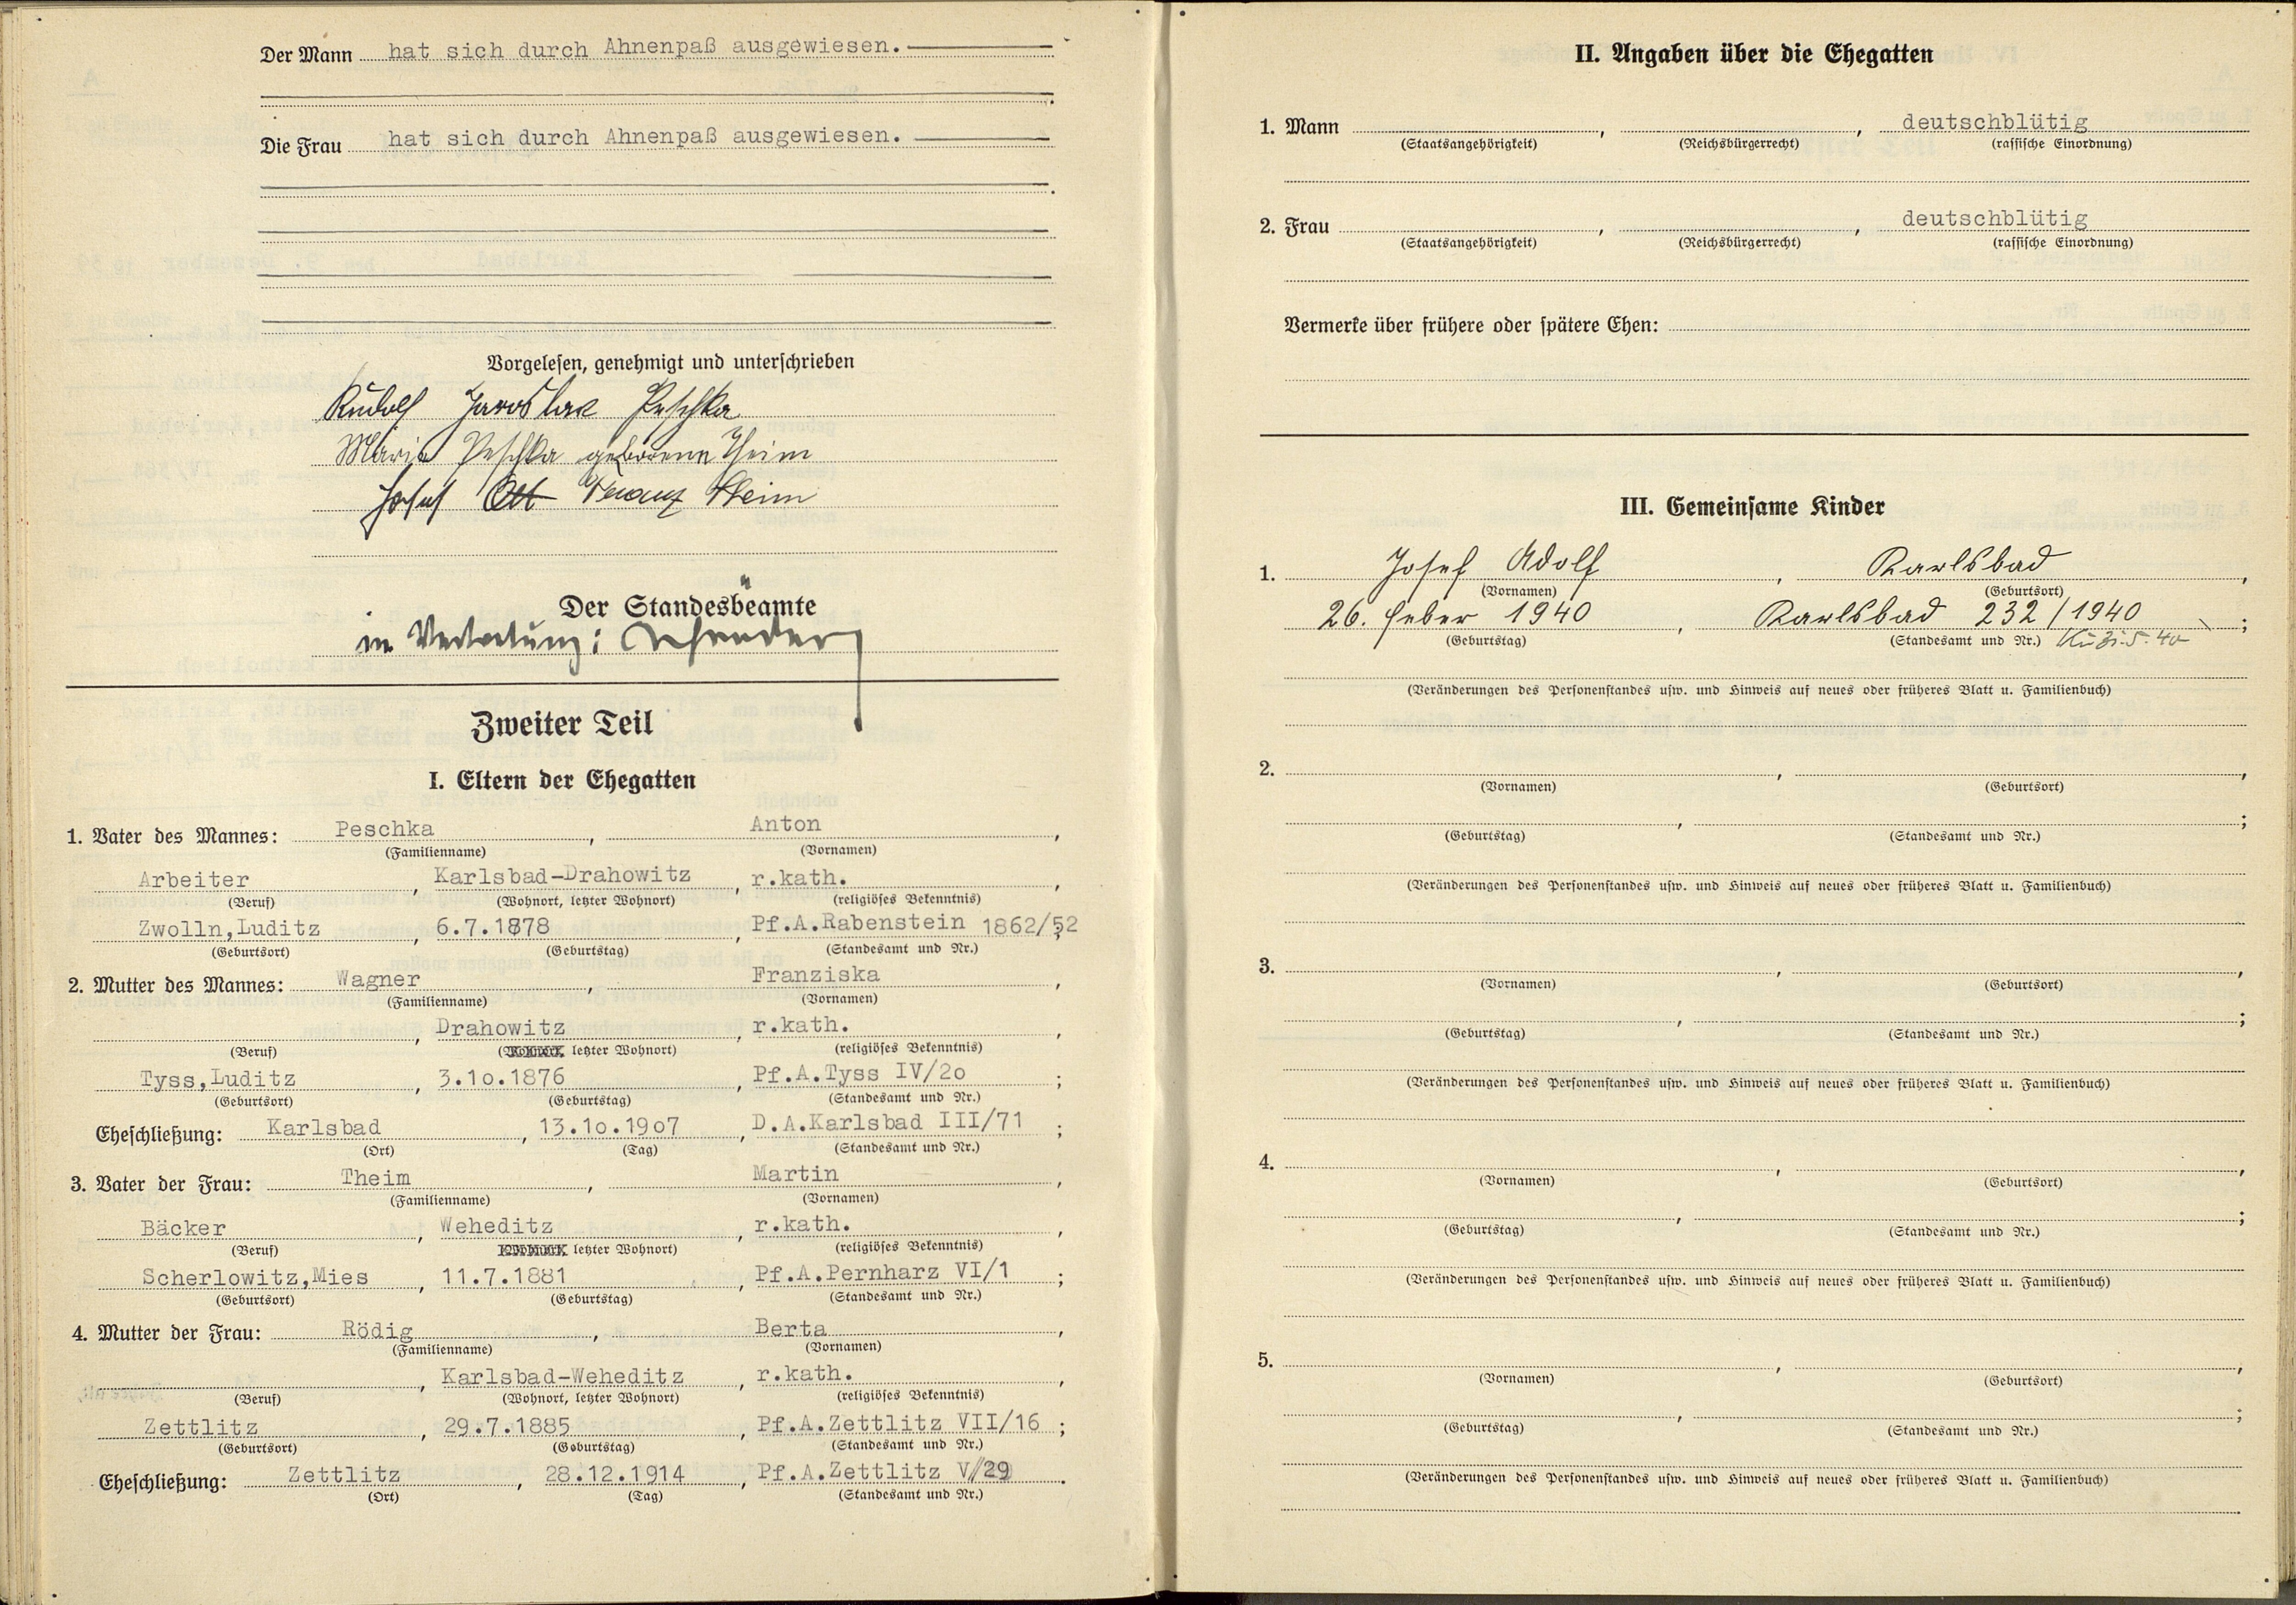 Der Mann hat sich durch Ahnenpaß ausgewiesen.
Die Frau hat sich durch Ahnenpaß ausgewiesen.
Vorgelesen, genehmigt und unterschrieben
Rudolf Jaroslav Peschka
Maria Peschka geborene Theim
Josef Ott Franz Theim
Der Standesbeamte
in Vertretung:
Zweiter Teil
I. Eltern der Ehegatten
1. Vater des Mannes: Peschka, Anton,
(Familienname) (Vornamen)
Arbeiter, Karlsbad-Drahowitz, r.kath.,
(Beruf) (Wohnort, letzter Wohnort) (religiöses Bekenntnis)
Zwolln,Luditz, 6.7.1878, Pf.A.Rabenstein 1862/52;
(Geburtsort) (Geburtstag) (Standesamt und Nr.)
2. Mutter des Mannes: Wagner, Franziska,
(Familienname) (Vornamen)
, Drahowitz, r.kath.,
(Beruf) (letzter Wohnort) (religiöses Bekenntnis)
Tyss,Luditz, 3.10.1876, Pf.A.Tyss IV/20;
(Geburtsort) (Geburtstag) (Standesamt und Nr.)
Eheschließung: Karlsbad, 13.10.1907, D.A.Karlsbad III/71;
(Ort) (Tag) (Standesamt und Nr.)
3. Vater der Frau: Theim, Martin,
(Familienname) (Vornamen)
Bäcker, Weheditz, r.kath.,
(Beruf) letzter Wohnort) (religiöses Bekenntnis)
Scherlowitz,Mies, 11.7.1881, Pf.A.Pernharz VI/1;
(Geburtsort) (Geburtstag) (Standesamt und Nr.)
4. Mutter der Frau: Rödig, Berta,
(Familienname) (Vornamen)
, Karlsbad-Weheditz, r.kath.,
(Beruf) (Wohnort, letzter Wohnort) (religiöses Bekenntnis)
Zettlitz, 29.7.1885, Pf.A.Zettlitz VII/16;
(Geburtsort) (Geburtstag) (Standesamt und Nr.)
Eheschließung: Zettlitz, 28.12.1914, Pf.A.Zettlitz V/29.
(Ort) (Tag) (Standesamt und Nr.)
II. Angaben über die Ehegatten
1. Mann , , deutschblütig
(Staatsangehörigkeit) (Reichsbürgerrecht) (rassische Einordnung)
2. Frau , , deutschblütig
(Staatsangehörigkeit) (Reichsbürgerrecht) (rassische Einordnung)
Vermerke über frühere oder spätere Ehen:
III. Gemeinsame Kinder
1. Josef Adolf, Karlsbad,
(Vornamen) (Geburtsort)
26. Feber 1940, Karlsbad 232/1940;
(Geburtstag) (Standesamt und Nr.)
(Veränderungen des Personenstandes usw. und Hinweis auf neues oder früheres Blatt u. Familienbuch)
2. , ,
(Vornamen) (Geburtsort)
, ;
(Geburtstag) (Standesamt und Nr.)
(Veränderungen des Personenstandes usw. und Hinweis auf neues oder früheres Blatt u. Familienbuch)
3. , ,
(Vornamen) (Geburtsort)
, ;
(Geburtstag) (Standesamt und Nr.)
(Veränderungen des Personenstandes usw. und Hinweis auf neues oder früheres Blatt u. Familienbuch)
4. , ,
(Vornamen) (Geburtsort)
, ;
(Geburtstag) (Standesamt und Nr.)
(Veränderungen des Personenstandes usw. und Hinweis auf neues oder früheres Blatt u. Familienbuch)
5. , ,
(Vornamen) (Geburtsort)
, ;
(Geburtstag) (Standesamt und Nr.)
(Veränderungen des Personenstandes usw. und Hinweis auf neues oder früheres Blatt u. Familienbuch)